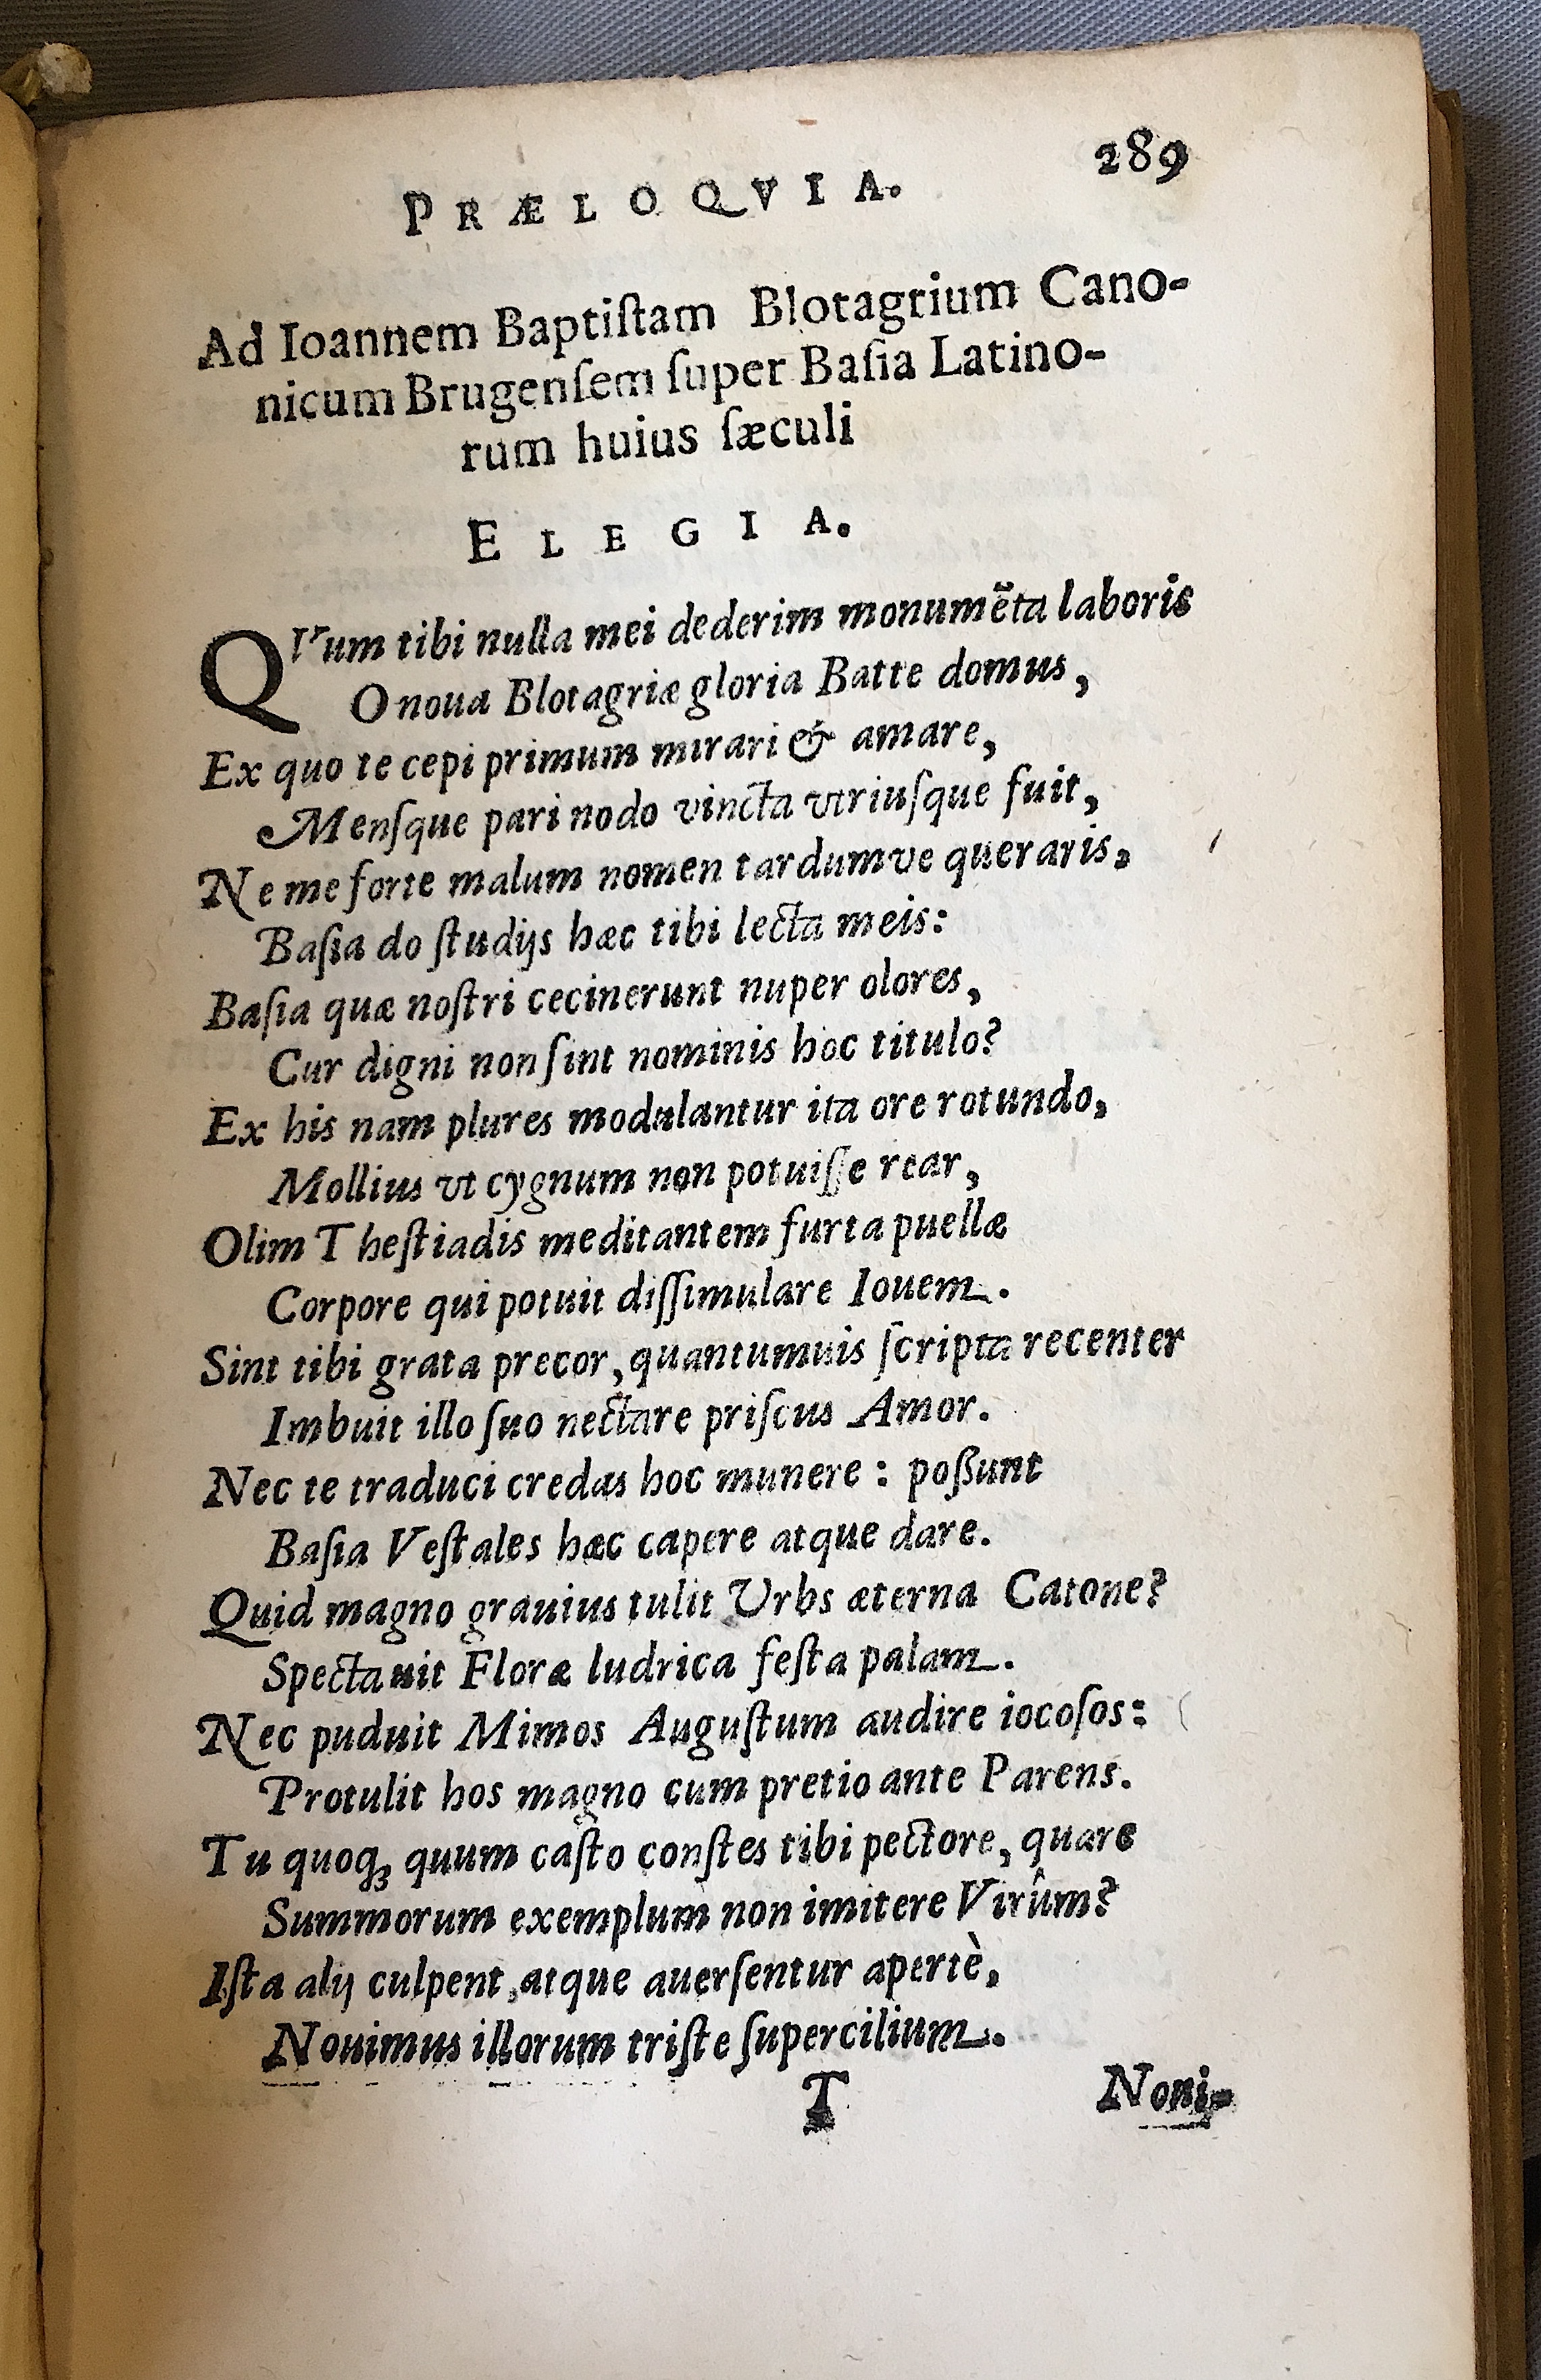 289
PRÆLOQVIA.
Ad Ioannem Baptiſtam Blotagrium Cano-
nicum Brugenſem ſuper Baſia Latino-
rum huius ſæculi
ELEGIA.
QVum tibi nulla mei dederim monumẽta laboris
O noua Blotagriæ gloria Batte domus,
Ex quo te cepi primum mirari & amare,
Menſque pari nodo vincta vtriuſque fuit,
Ne me forte malum nomen tardumve queraris,
Baſia do ſtudijs hæc tibi lecta meis:
Baſia quæ noſtri cecinerunt nuper olores,
Cur digni non ſint nominis hoc titulo?
Ex his nam plures modulantur ita ore rotundo,
Mollius vt cygnum non potuiſſe rear,
Olim Theſtiadis meditantem furta puellæ
Corpore qui potuit diſſimulare Iouem.
Sint tibi grata precor, quantumuis ſcripta recenter
Imbuit illo ſuo nectare priſcus Amor.
Nec te traduci credas hoc munere : poßunt
Baſia Veſtales hæc capere atque dare.
Quid magno grauius tulit Urbs æterna Catone?
Spectauit Floræ ludrica feſta palam.
Nec puduit Mimos Auguſtum audire iocoſos:
Protulit hos magno cum pretio ante Parens.
Tu quoq; quum caſto conſtes tibi pectore, quare
Summorum exemplum non imitere Virûm?
Iſta alij culpent, atque auerſentur apertè,
Nouimus illorum triſte ſupercilium.
T
Noui-